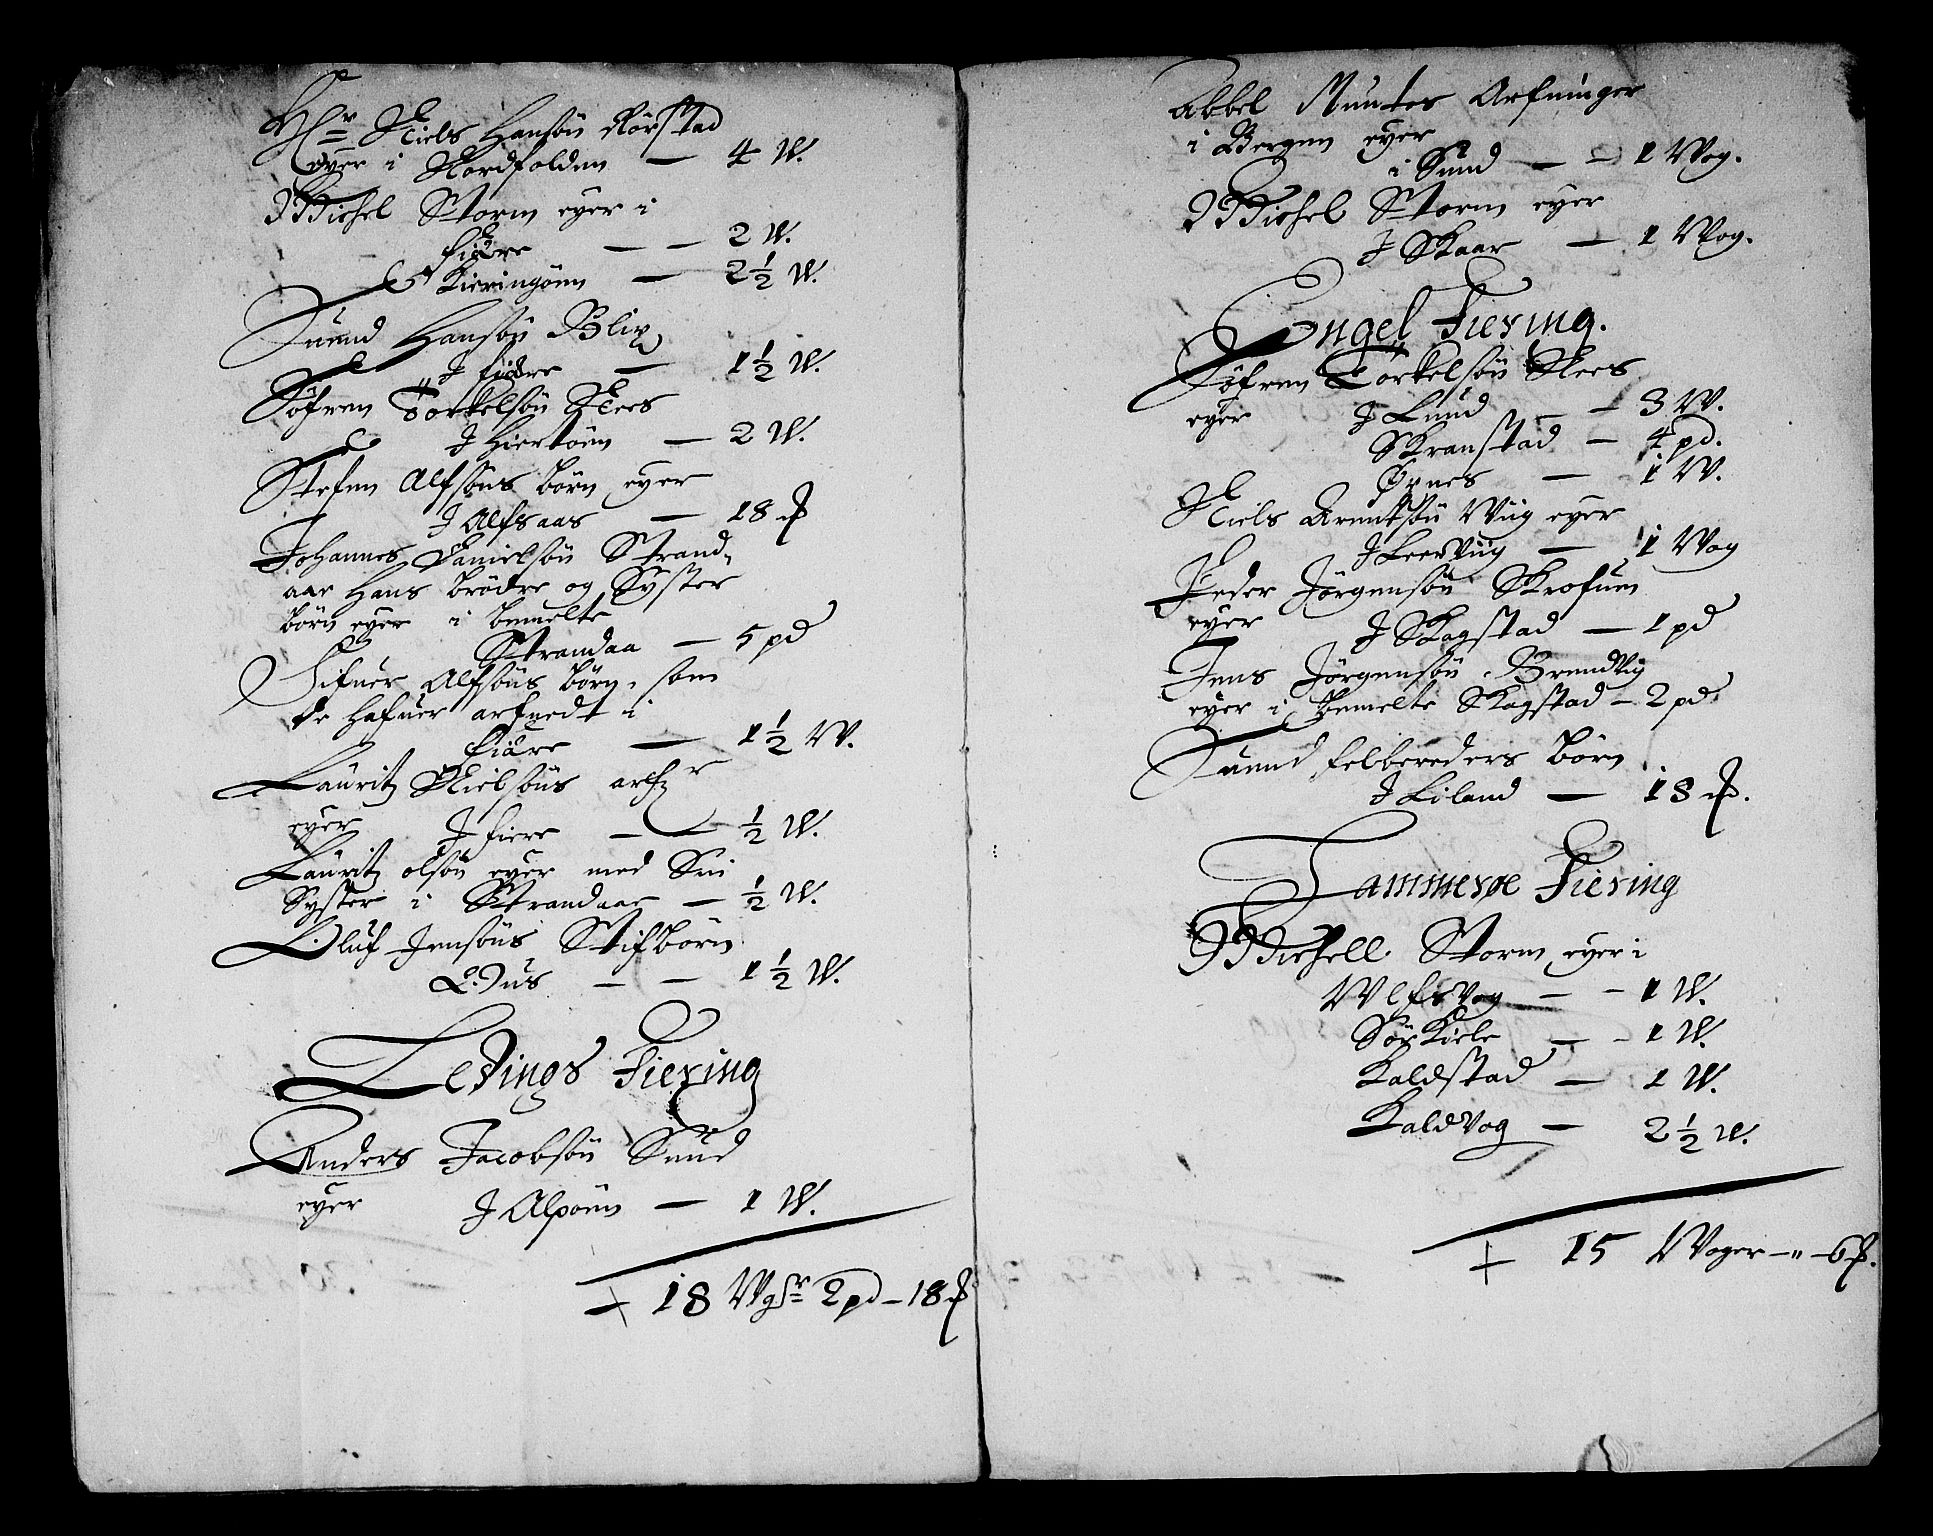 Hr Niels Hansøn Rørstad
eyer i Nordfolden — 4 W.
Michel Storm eyer i
fiære — — 2 W.
Kieringøen — 2½ W.
Suend Hansøn Blix
J fiære — 1½ W.
Søfren Torkelsøn Nees
J Hiertøen — 2 W.
Stefen Alfsøns børn eyer
J Alfsaas — 18 ℔
Johannes Danielsøn Strand-
aae Hans brödre og Syster
børn eyer i bemelte
Strandaa — 5 pd
Sifuer Alfsøns børn, som
de hafuer arfuedt i
fiære — 1½ W.
Lauritz Nielsøns arfr
eyer J fiere — ½ W.
Lauritz olsøn eyer med Sin
Syster i Strandaae — ½ W.
Oluf Jensøns Stifbørn
Øius — — 1½ W.
Ledings Fiering
Anders Jacobsøn Sund
eyer J Alpøen — 1 W.
18 Wgr 2 pd — 18 ℔
Abbel Muntes Arfuinger
i Bergen eyer
i Sund — — 1 Wog.
Michel Storm eyer
J Skaar — 1 Wog.
Engel Fiering.
Søfren Torkelsøn Nees
eyer J Lund — — 3 W.
Skranstad — 4 pd.
Øpnes — 1 W.
Niels Arentsøn Wiig eyer
J Leerviig — 1 Wog
Peder Jørgensøn Skrofuen
eyer J Skagstad — 1 pd
Jens Jørgensøn Brendvig
eyer i bemelte Skagstad — 2 pd
Suend felbereders børn
J Liland — 18 ℔.
Tammerøe Fiering
Michell Storm eyer i
Wlfsvog — — 1 W.
Sør Kiele — — 1 W.
Kaldstad — 1 W.
Kaldvog — 2½ W.
15 Woger — " — 6 ℔.